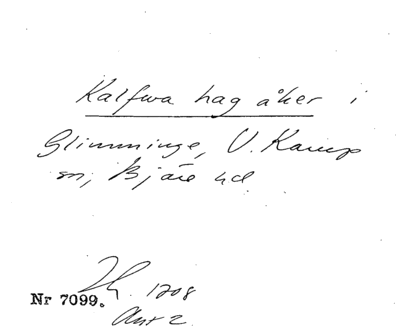 Kalfwa hag åker i
Glimminge, V. Karup
sn, Bjäre hd
Nr 7099. Lh. 1708
Akt 2